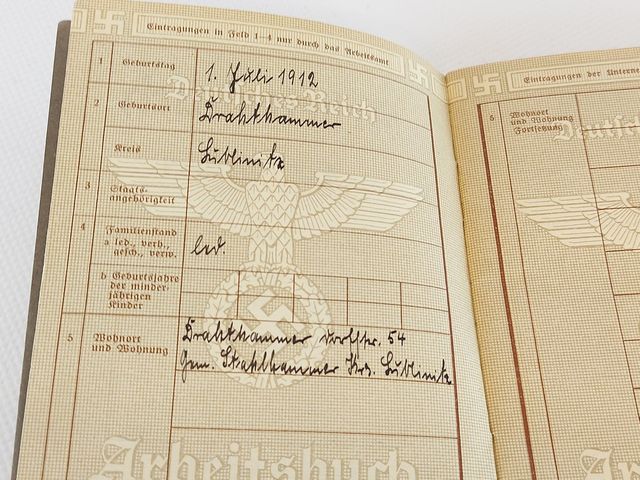 Eintragungen in Feld 1–4 nur durch das Arbeitsamt
1 Geburtstag 1. Juli 1912
Deutsches Reich
2 Geburtsort Drahthammer
Kreis Lublinitz
3 Staats-
angehörigkeit
4 Familienstand
a led., verh.,
gesch., verw. led.
b Geburtsjahre
der minder-
jährigen
Kinder
5 Wohnort
und Wohnung
Drahthammer Dorfstr. 54
Gem. Stahlhammer Krs. Lublinitz
Arbeitsbuch
Eintragungen der
5 Wohnort
und Wohnung
Fortsetzung